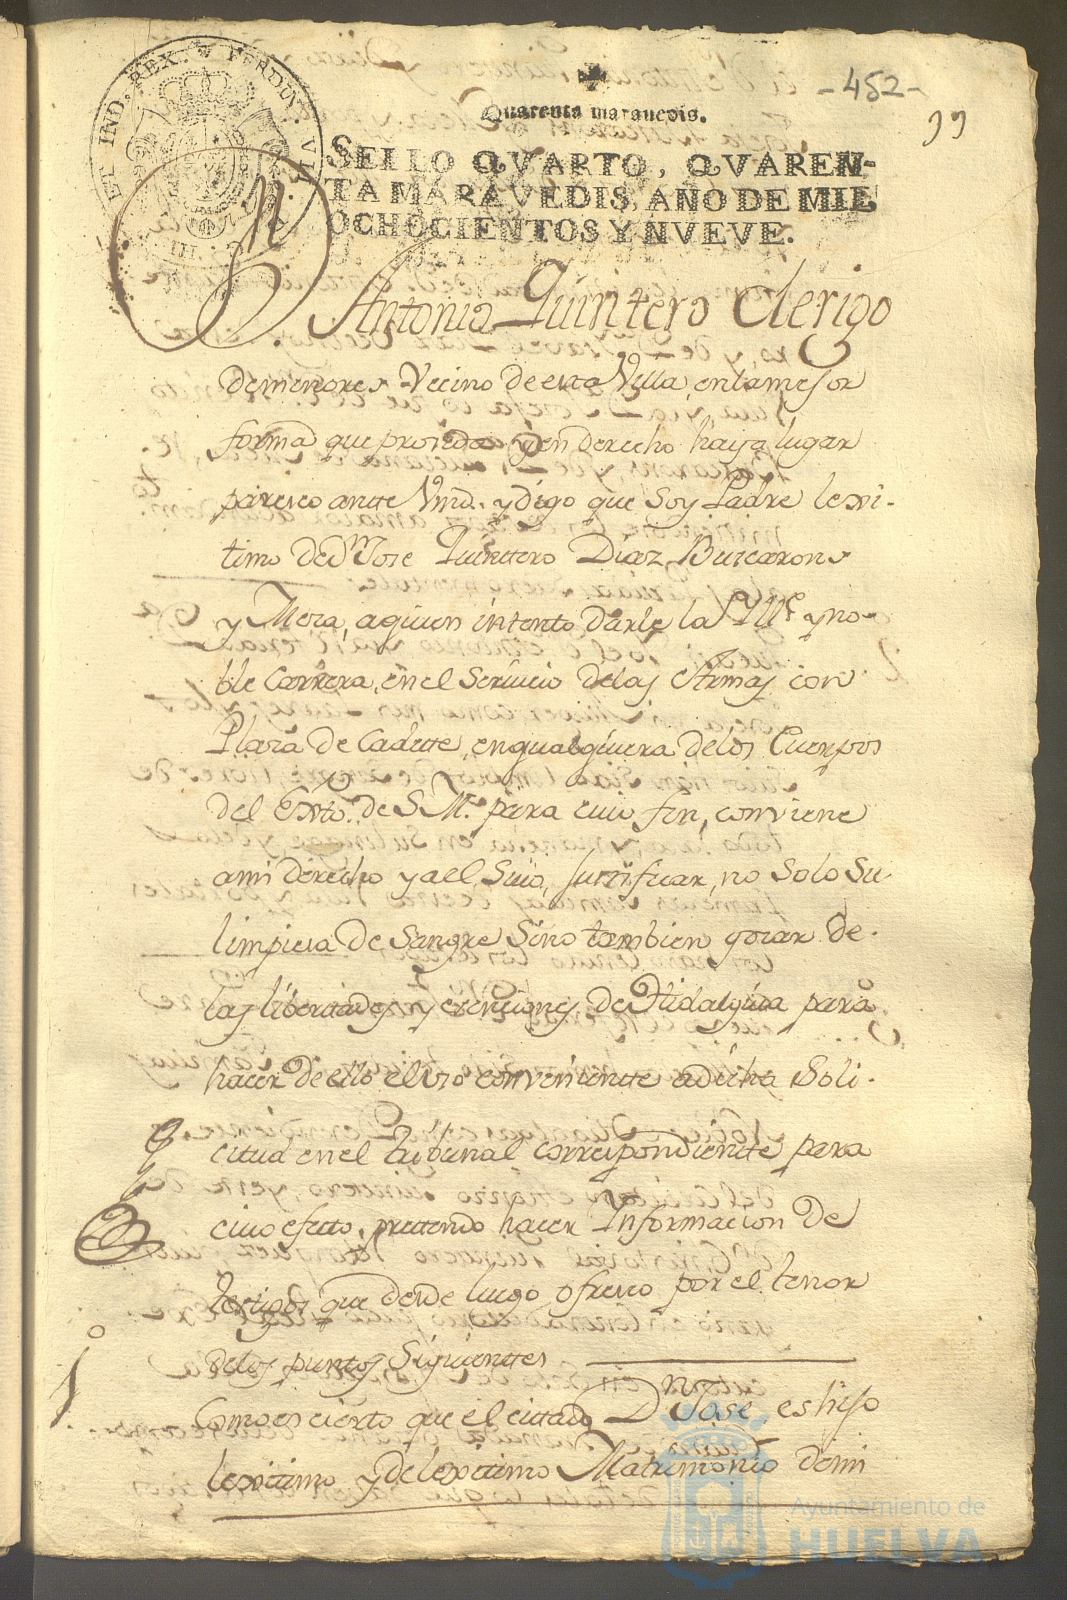 ET IND. REX. FERDIN. VII.
-452-
99
Quarenta maravedis.
SELLO QVARTO, QVAREN-
TA MARAVEDIS, AÑO DE MIL
OCHOCIENTOS Y NVEVE.
Dn Antonio Quintero Clerigo
de menores Vecino de esta Villa, en la mejor
forma que proceda y en derecho haya lugar
paresco ante Vmd. y digo que soy Padre lexi-
timo de Dn Jose Quintero Diaz Buscarons
y Mora, a quien intento darle la Ille y no-
ble Carrera, en el Servicio de las Armas con
Plaza de Cadete, en qualquiera de los Cuerpos
del Exto. de S. M. para cuio fin, conviene
a mi derecho y a el Suio, Justificar, no Solo Su
limpieza de Sangre Sino tambien gozar de
las libertades y esenciones de Hidalguia para
hacer de ello el uso conveniente a dicha Soli-
citud en el Tribunal correspondiente para
cuio efecto, pretendo hacer Informacion de
testigos que desde luego ofresco por el tenor
de los puntos Siguientes
1o
Como es cierto que el citado Dn Jose es hijo
lexitimo y de lexitimo Matrimonio de mi
Ayuntamiento de
HUELVA